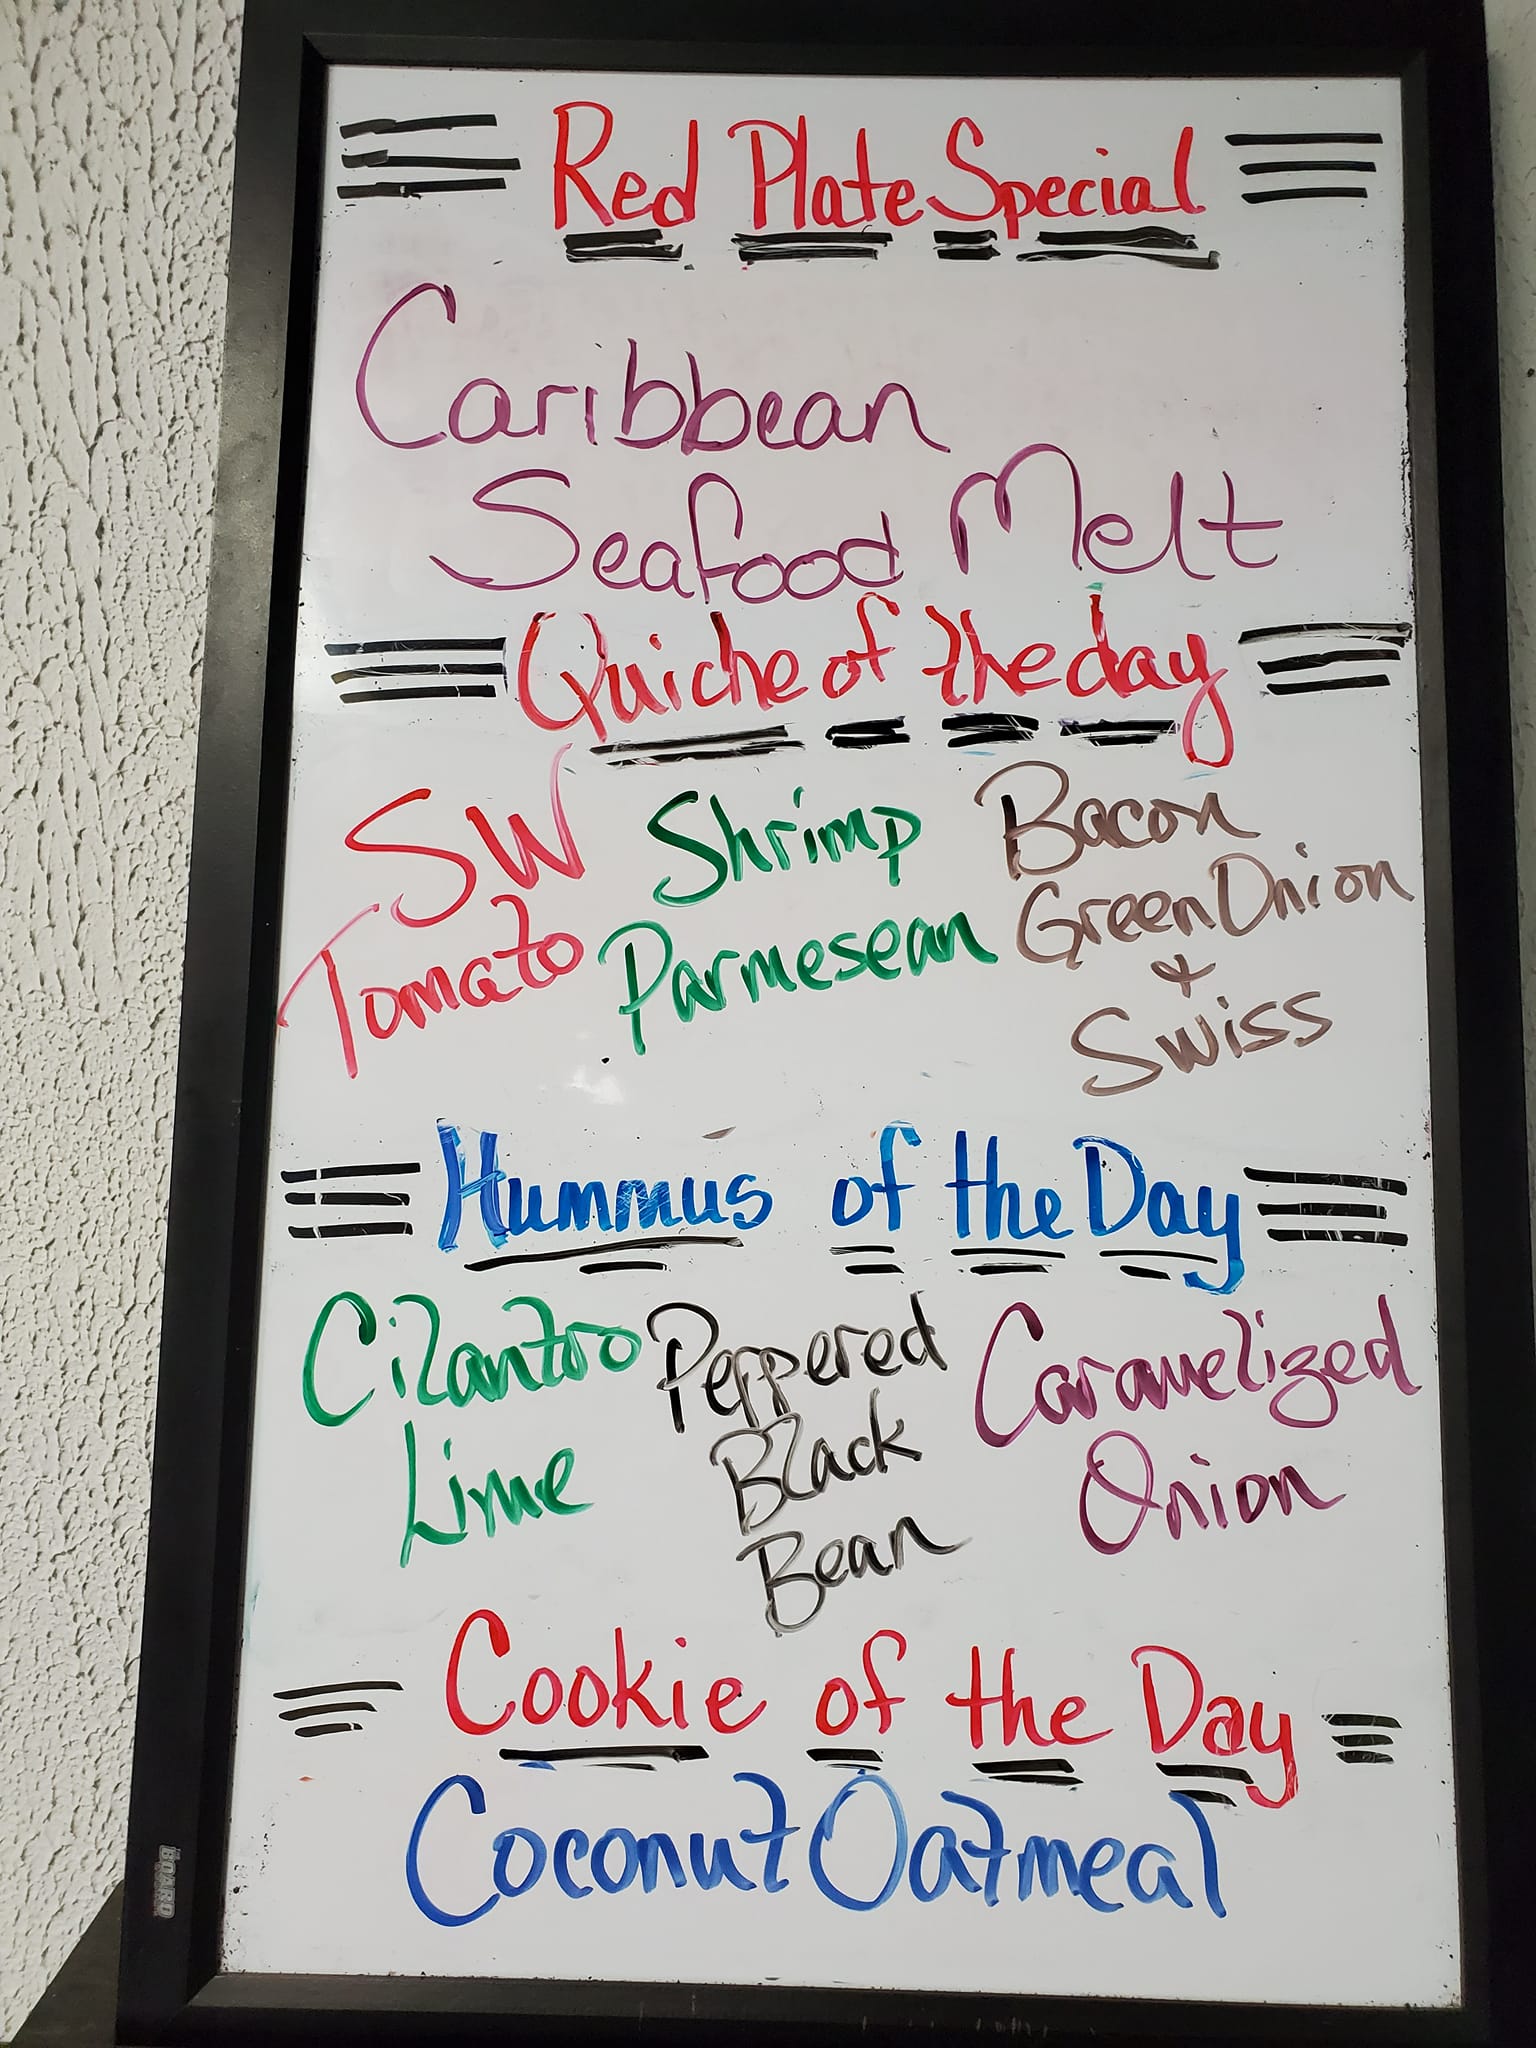 Red Plate Special
Caribbean
Seafood Melt
Quiche of the day
SW
Tomato
Shrimp
Parmesean
Bacon
Green Onion
&
Swiss
Hummus of the Day
Cilantro
Lime
Peppered
Black
Bean
Caramelized
Onion
Cookie of the Day
Coconut Oatmeal
BOARD